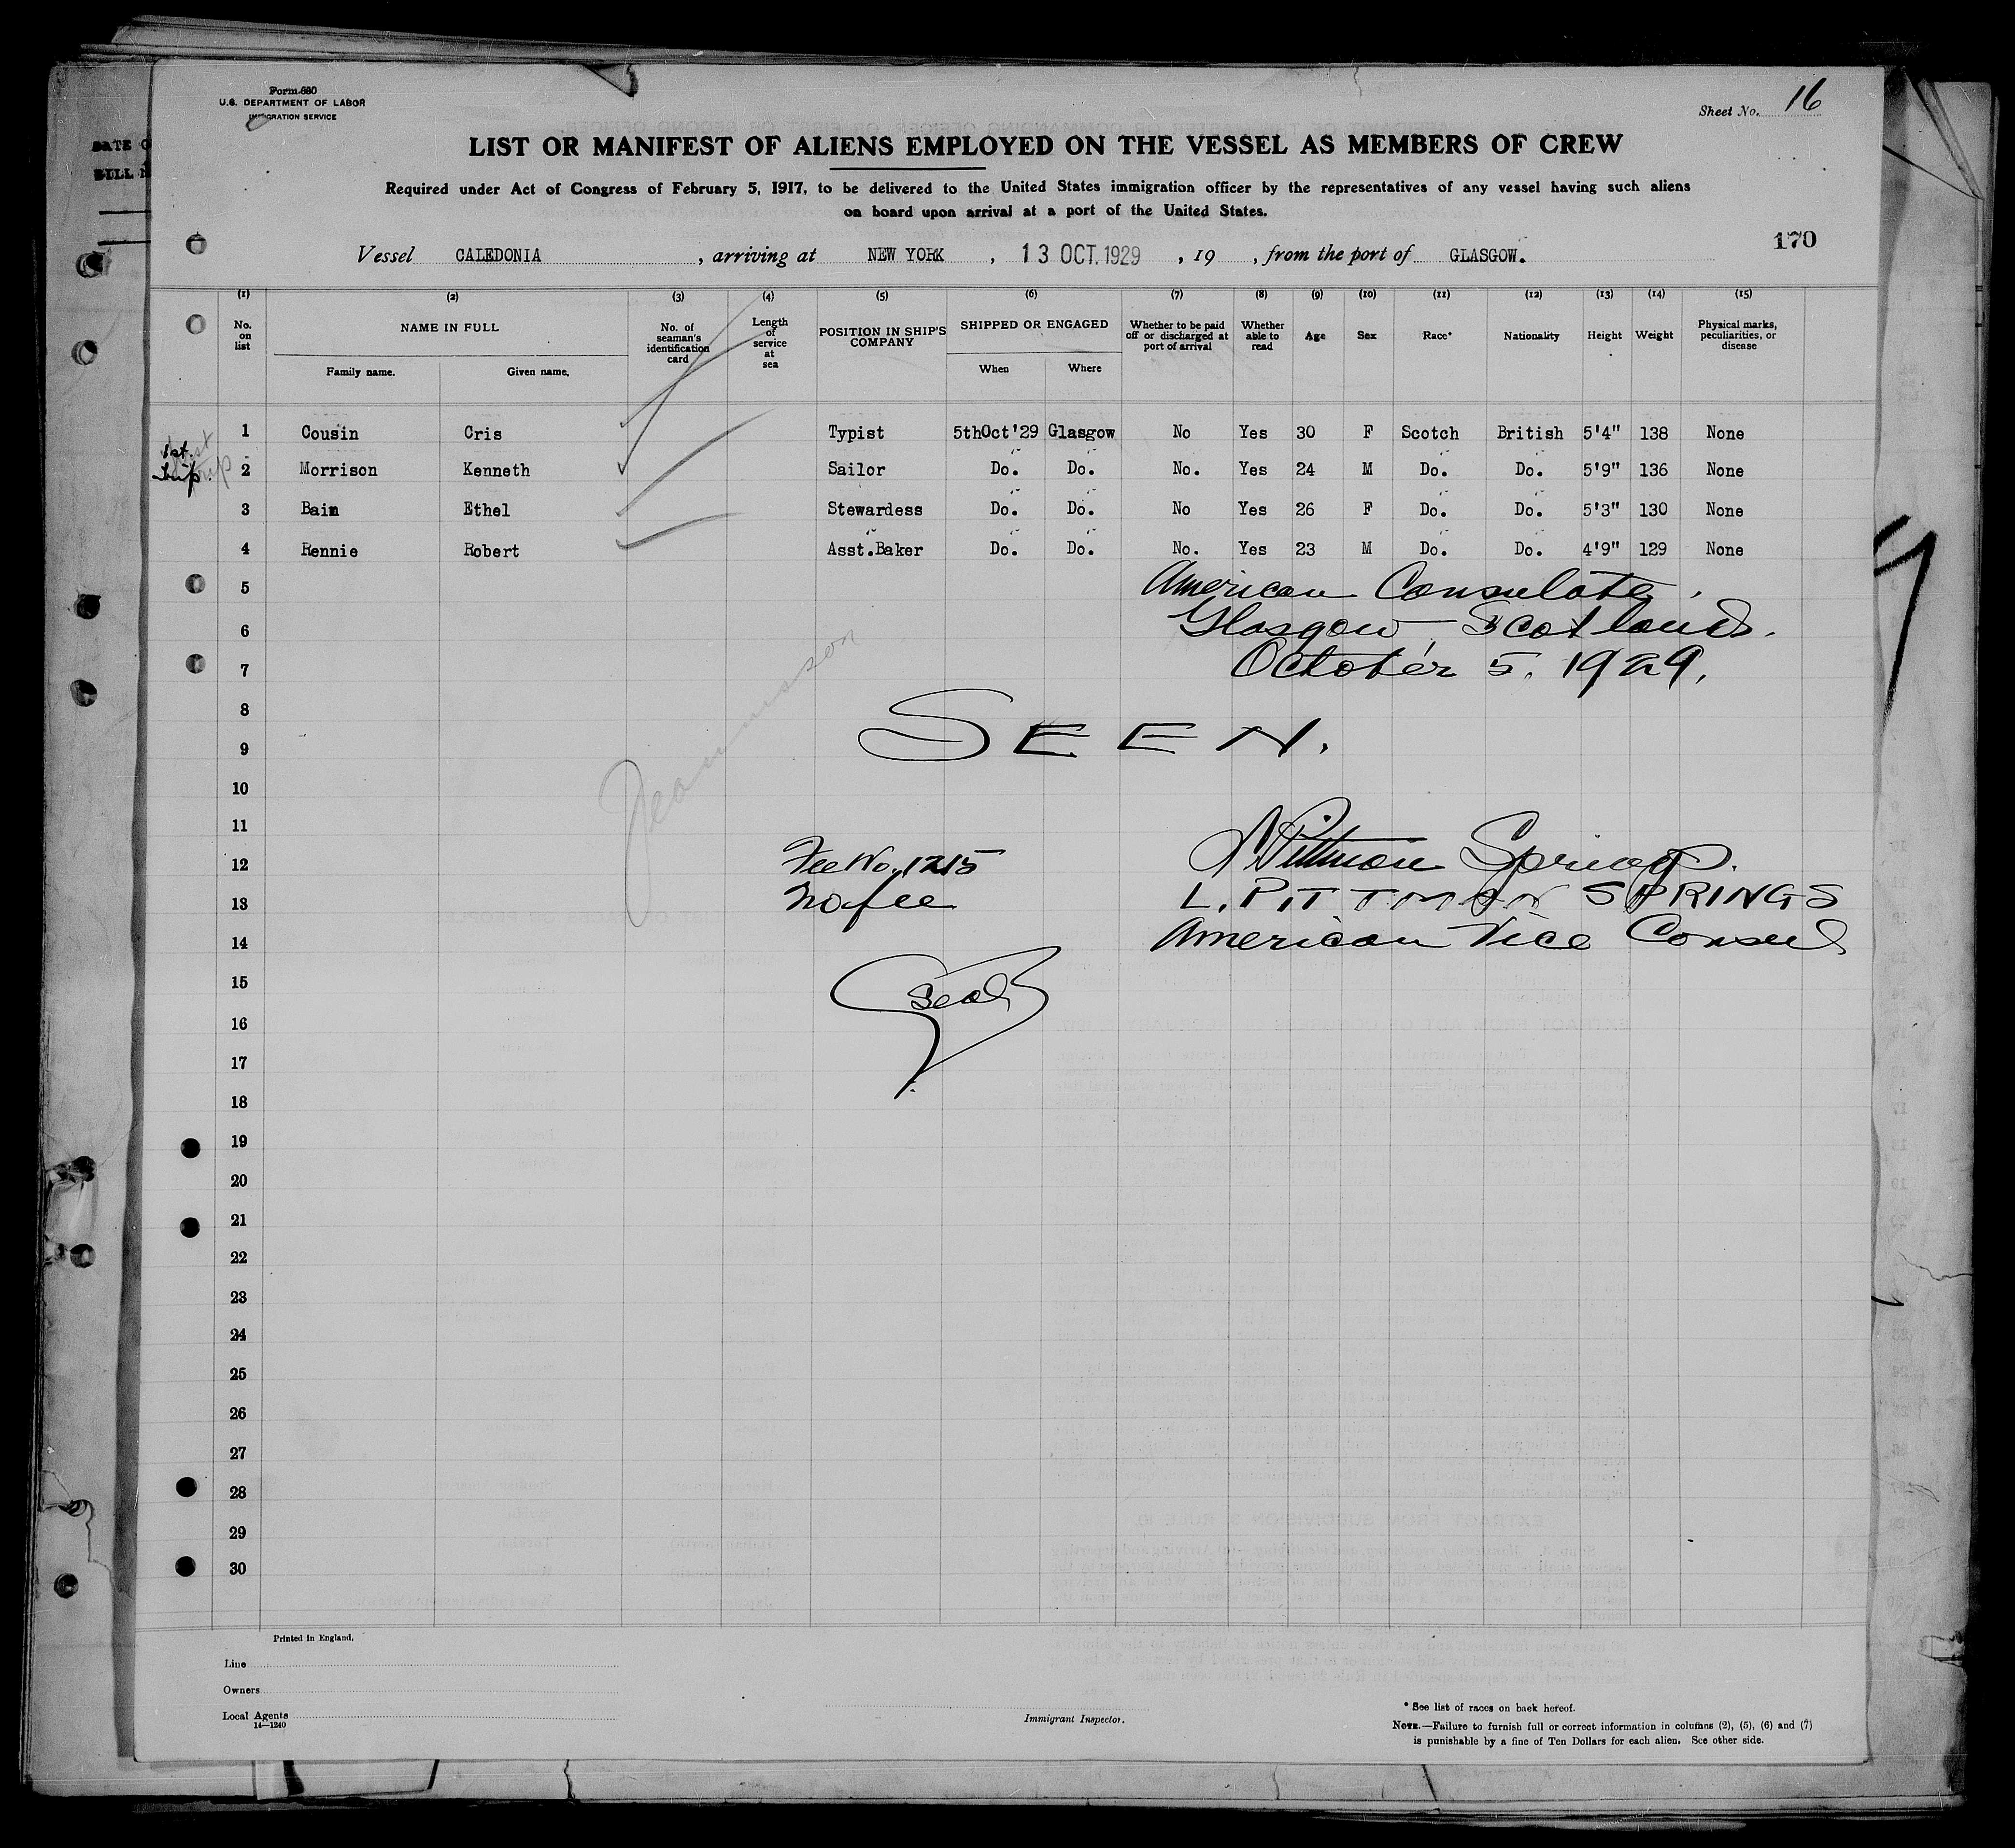 Form 680
U.S. DEPARTMENT OF LABOR
IMMIGRATION SERVICE
Sheet No. 16
LIST OR MANIFEST OF ALIENS EMPLOYED ON THE VESSEL AS MEMBERS OF CREW
Required under Act of Congress of February 5, 1917, to be delivered to the United States immigration officer by the representatives of any vessel having such aliens
on board upon arrival at a port of the United States.
170
Vessel CALEDONIA, arriving at NEW YORK, 13 OCT. 1929, 19 , from the port of GLASGOW.
(1) (2) (3) (4) (5) (6) (7) (8) (9) (10) (11) (12) (13) (14) (15)
No. on list NAME IN FULL Family name. Given name. No. of seaman's identification card Length of service at sea POSITION IN SHIP'S COMPANY SHIPPED OR ENGAGED When Where Whether to be paid off or discharged at port of arrival Whether able to read Age Sex Race* Nationality Height Weight Physical marks, peculiarities, or disease
1 Cousin Cris Typist 5thOct'29 Glasgow No Yes 30 F Scotch British 5'4" 138 None
1st. trip. 2 Morrison Kenneth Sailor Do. Do. No. Yes 24 M Do. Do. 5'9" 136 None
3 Bain Ethel Stewardess Do. Do. No Yes 26 F Do. Do. 5'3" 130 None
4 Rennie Robert Asst.Baker Do. Do. No. Yes 23 M Do. Do. 4'9" 129 None
5 American Consulate,
6 Glasgow Scotland.
7 October 5, 1929.
8
9 SEEN.
10
11
12 Fee No. 1215 L Pittman Springs.
13 No fee L. PITTMAN SPRINGS
14 American Vice Consul
15 Seal
16
17
18
19
20
21
22
23
24
25
26
27
28
29
30
Printed in England.
Line
Owners
Local Agents
14—1240
Immigrant Inspector.
* See list of races on back hereof.
NOTE.—Failure to furnish full or correct information in columns (2), (5), (6) and (7)
is punishable by a fine of Ten Dollars for each alien. See other side.